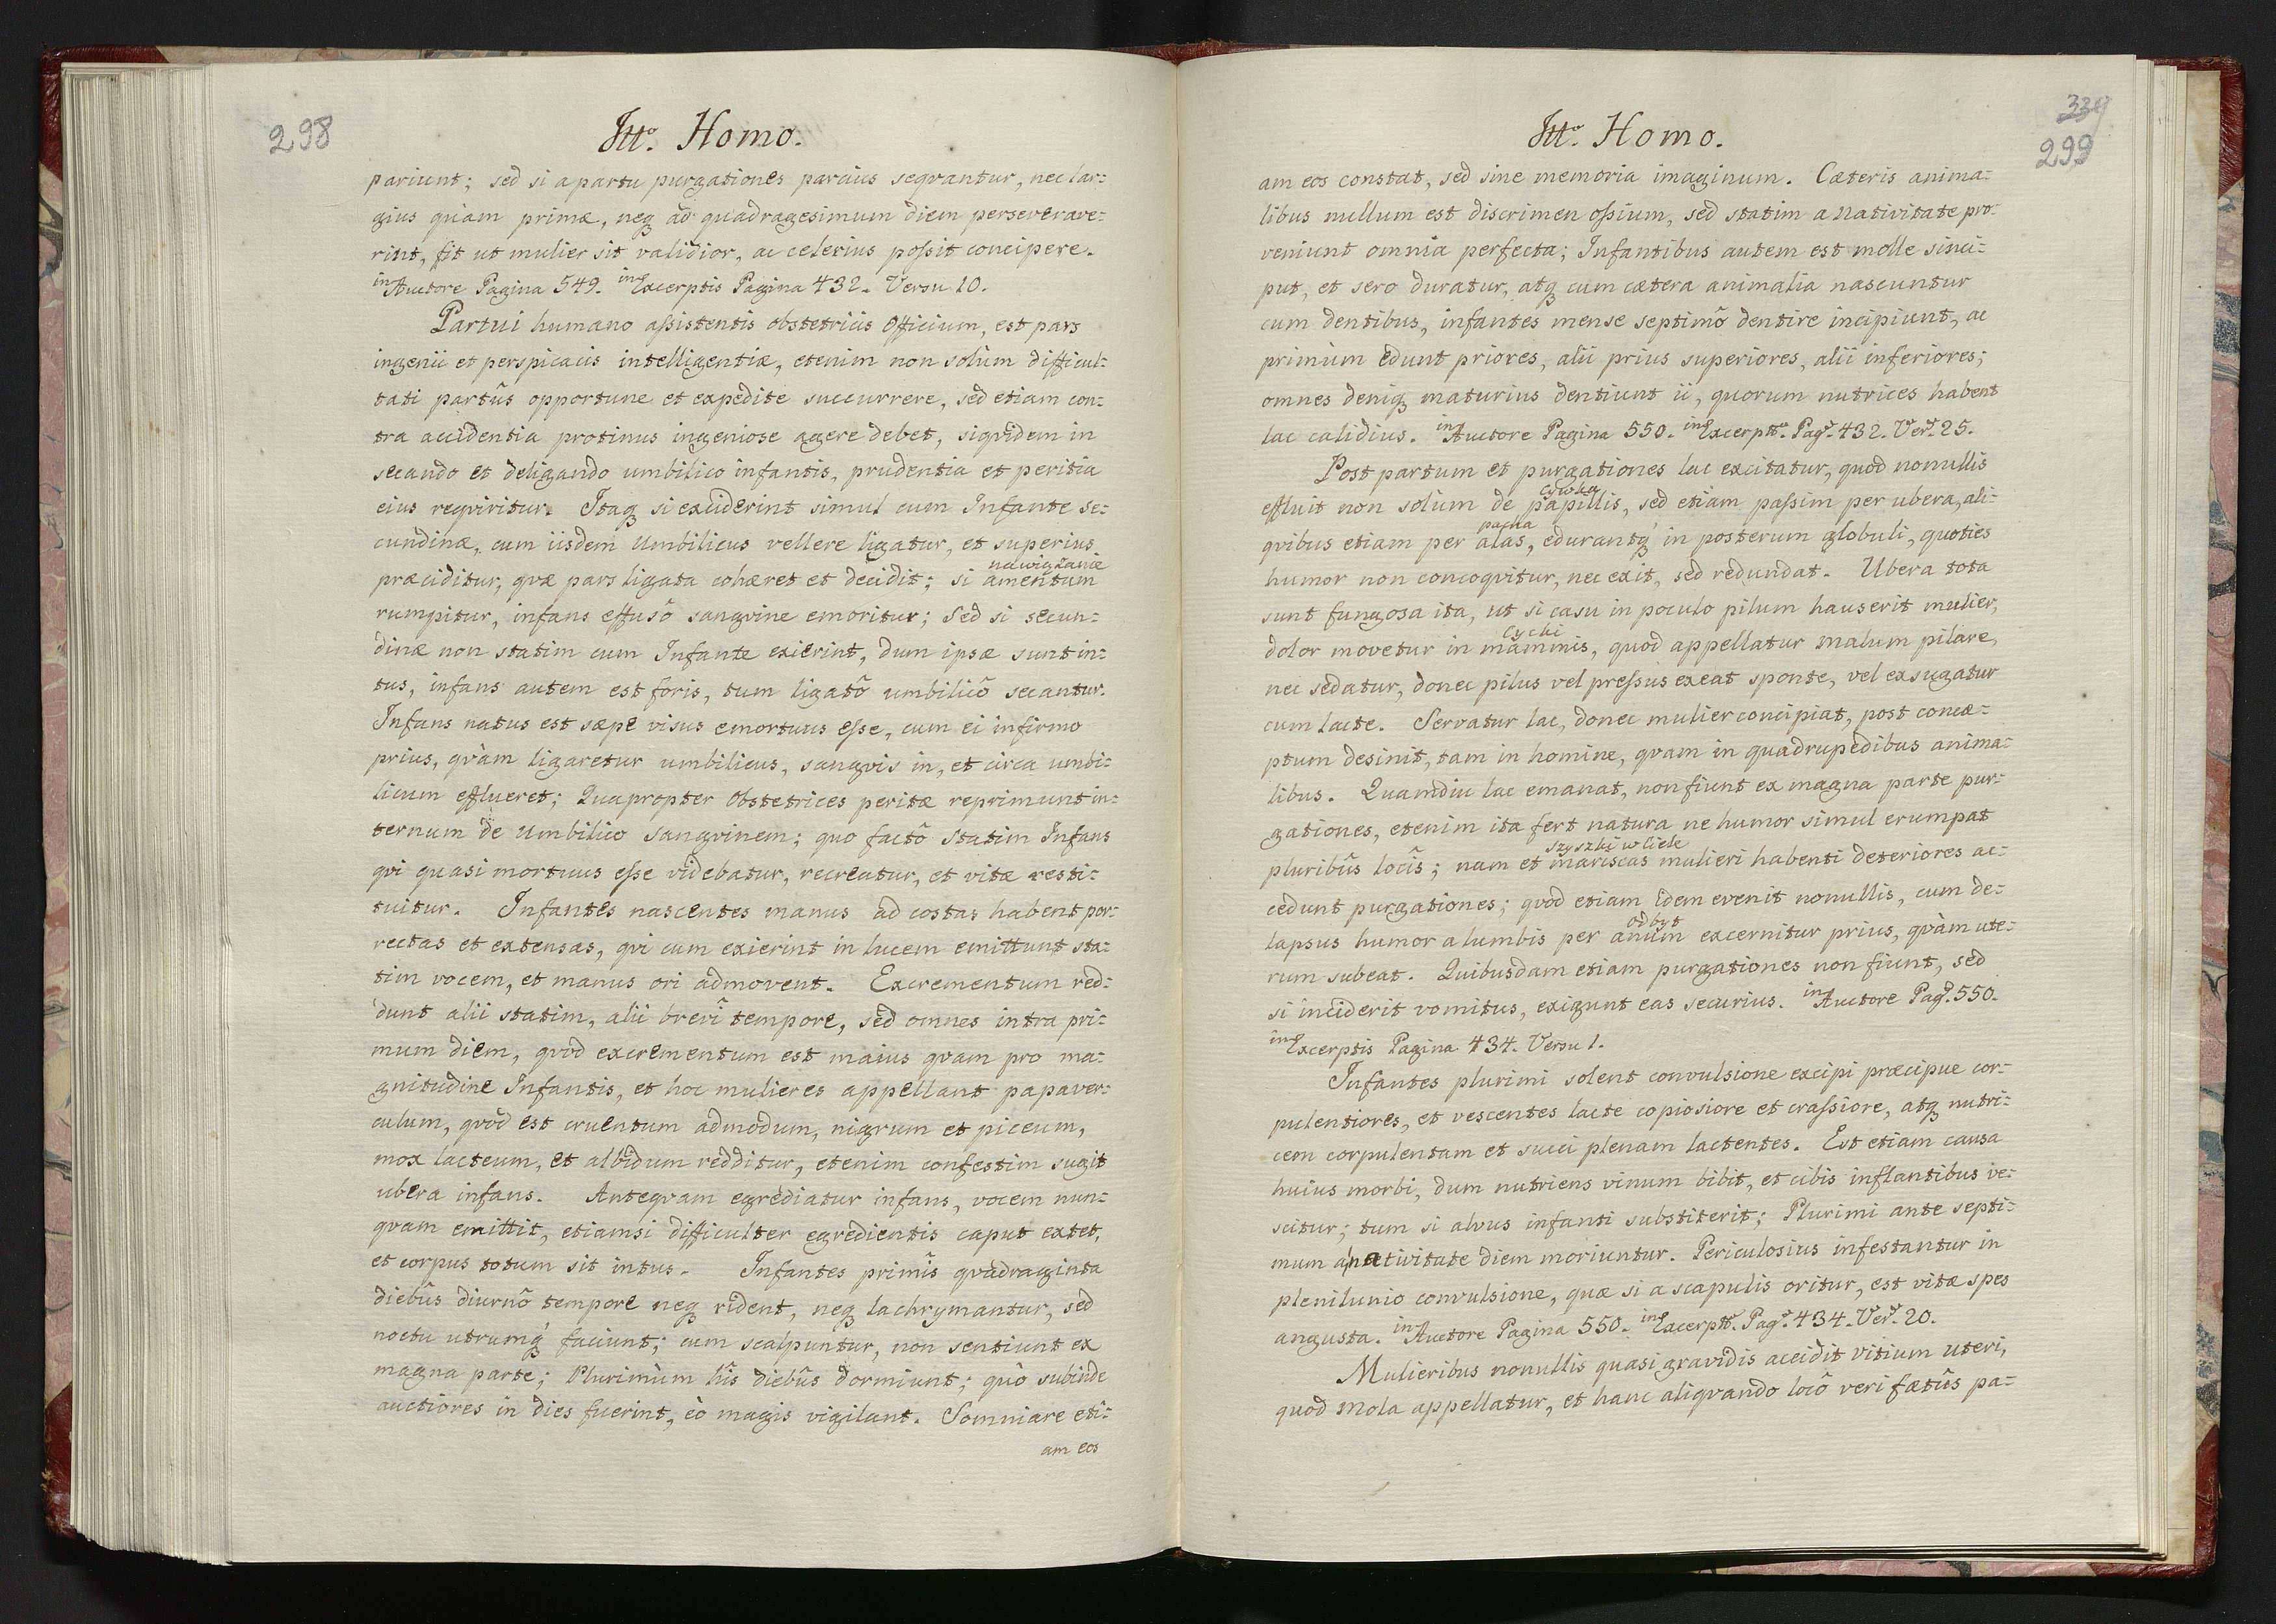 298
Itto. Homo.
pariunt; sed si a partu purgationes parcius seqvantur, nec lar-
gius qùam primæ, neq ad quadragesimum diem perseverave-
rint, fit ut mulier sit validior, ac celerius possit concipere.
in Auctore Pagina 549. in Excerptis Pagina 432. Versu 10.
Partui humano assistentis obstetricis Officium, est pars
ingenii et perspicacis intelligentiæ, etenim non solùm difficul-
tati partûs opportune et expedite succurrere, sed etiam con-
tra accidentia protinus ingeniose agere debet, siqvidem in
secando et deligando umbilico infantis, prudentia et peritia
eius reqviritur. Itaq si exciderint simul cum Infante se-
cundinæ, cum iisdem Umbilicus vellere ligatur, et superius
præciditur, qvæ pars ligata cohæret et decidit; si amentum
rumpitur, infans effusô sangvine emoritur; Sed si secun-
dinæ non statim cum Infante exierint, dum ipsæ sunt in-
tus, infans autem est foris, tum ligatô umbilicô secantur.
Infans natus est sæpe visus emortuus esse, cum ei infirmo
prius, qvàm ligaretur umbilicus, sangvis in, et circa umbi-
licum efflueret; Quapropter Obstetrices peritæ reprimunt in-
ternum de Umbilico Sangvinem; quo factô Statim Infans
qvi quasi mortuus esse videbatur, recreatur, et vitæ resti-
tuitur. Infantes nascentes manus ad costas habent por-
rectas et extensas, qvi cum exierint in lucem emittunt sta-
tim vocem, et manus ori admovent. Excrementum red-
dunt alii statim, alii brevî tempore, sed omnes intra pri-
mum diem, qvod excrementum est maius qvam pro ma-
gnitudine Infantis, et hoc mulieres appellant papaver-
culum, qvod est cruentum admodum, nigrum et piceum,
mox lacteum, et albidum redditur, etenim confestim sugit
ubera infans. Anteqvam egrediatur infans, vocem nun-
qvam emittit, etiamsi difficulter egredientis caput extet,
et corpus totum sit intus. Infantes primîs qvadraginta
diebûs diurnô tempore neq rident, neq lachrymantur, sed
noctu utrumq́ faciunt; cum scalpuntur, non sentiunt ex
magna parte; Plurimùm hîs diebûs dormiunt; quò subinde
auctiores in dies fuerint, eò magis vigilant. Somniare eti-
am eos
339
299
Itto. Homo.
am eos constat, sed sine memoria imaginum. Cæteris anima-
libus nullum est discrimen ossium, sed statim a Nativitate pro-
veniunt omnia perfecta; Infantibus autem est molle sinci-
put, et sero duratur, atq cum cætera animalia nascuntur
cum dentibus, infantes mense septimô dentire incipiunt, ac
primùm edunt priores, alii prius superiores, alii inferiores;
omnes deniq maturius dentiunt ii, quorum nutrices habent
lac calidius. in Auctore Pagina 550. in Excerptto. Pagr. 432. Verr. 25.
Post partum et purgationes lac excitatur, quod nonullis
cywka
effluit non solùm de papillis, sed etiam passim per ubera, ali-
pacha
qvibus etiam per alas, edurantq́ in posterum globuli, quoties
humor non concoqvitur, nec exit, sed redundat. Ubera tota
sunt fungosa ita, ut si casu in poculo pilum hauserit mulier,
Cycki
dolor movetur in mammis, quod appellatur Malum pilare,
nec sedatur, donec pilus vel pressus exeat sponte, vel exsugatur
cum lacte. Servatur lac, donec mulier concipiat, post conce-
ptum desinit, tam in homine, qvam in quadrupedibus anima-
libus. Quamdiu lac emanat, non fiunt ex magna parte pur-
gationes, etenim ita fert natura ne humor simul erumpat
szyszki w licie
pluribûs locîs; nam et mariscas mulieri habenti deteriores ac-
cedunt purgationes; qvod etiam idem evenit nonullis, cum de-
odbyt
lapsus humor a lumbis per anum excernitur prius, qvàm ute-
rum subeat. Quibusdam etiam purgationes non fiunt, sed
si inciderit vomitus, exigunt eas securius. in Auctore Pag. 550.
in Excerptis Pagina 434. Versu 1.
Infantes plurimi solent convulsione excipi præcipue cor-
pulentiores, et vescentes lacte copiosiore et crassiore, atq nutri-
cem corpulentam et succi plenam lactentes. Est etiam causa
huius morbi, dum nutriens vinum bibit, et cibis inflantibus ve-
scitur; tum si alvus infanti substiterit; Plurimi ante septi-
mum a nativitate diem moriuntur. Periculosius infestantur in
plenilunio convulsione, quæ si a scapulis oritur, est vitæ spes
angusta. in Auctore Pagina 550. in Excerptt. Pagr. 434. Verr. 20.
Mulieribus nonullis quasi gravidis accidit vitium uteri,
quod Mola appellatur, et hanc aliqvando locô veri fætûs pa-